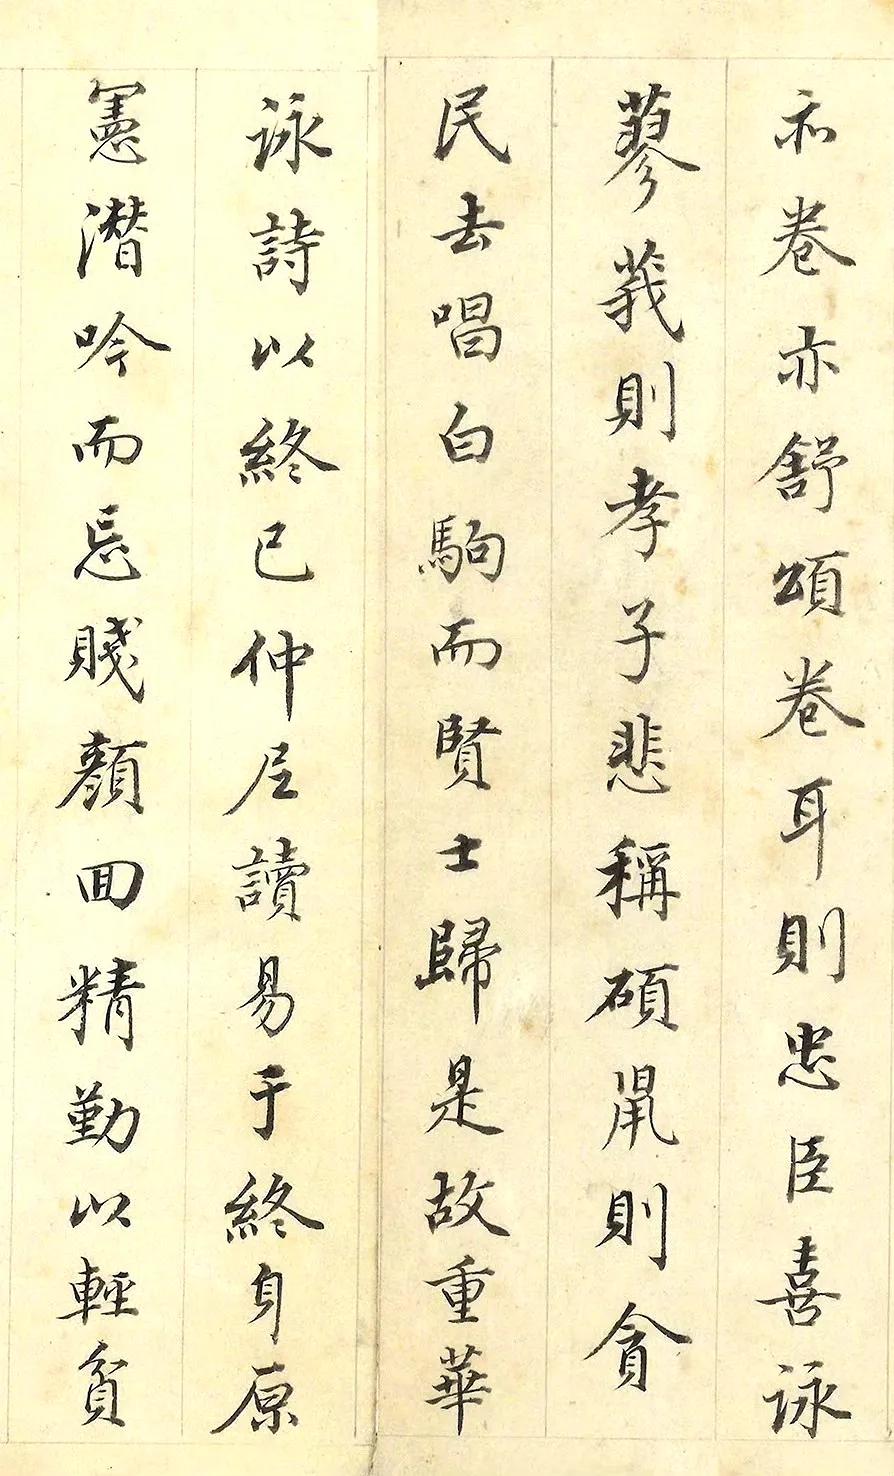 亦卷亦舒頌卷耳則忠臣喜詠
蓼莪則孝子悲稱碩鼠則貪
民去唱白駒而賢士歸是故重華
詠詩以終已仲尼讀易于終身原
憲潜吟而忘賤顏回精勤以輕貧